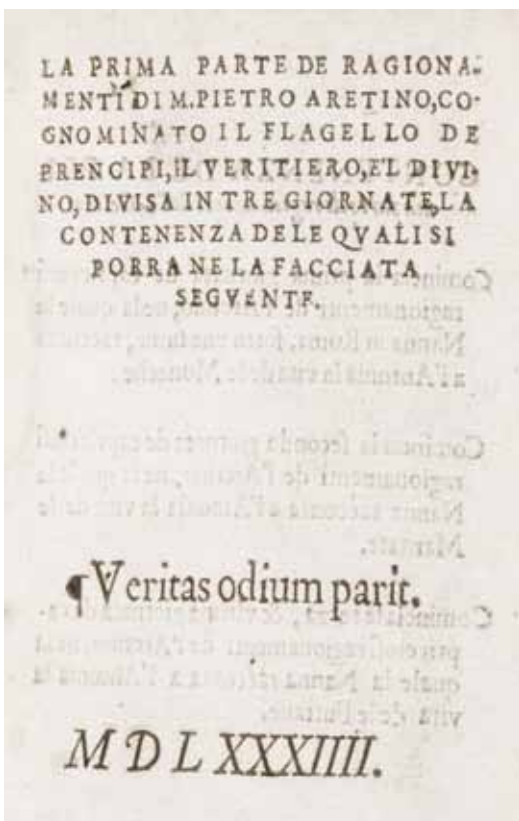 LA PRIMA PARTE DE RAGIONA-
MENTI DI M.PIETRO ARETINO,CO-
GNOMINATO IL FLAGELLO DE
PRENCIPI,IL VERITIERO,E'L DIVI-
NO,DIVISA IN TRE GIORNATE,LA
CONTENENZA DE LE QVALI SI
PORRA NE LA FACCIATA
SEGVENTE.
¶Veritas odium parit.
MDLXXXIIII.